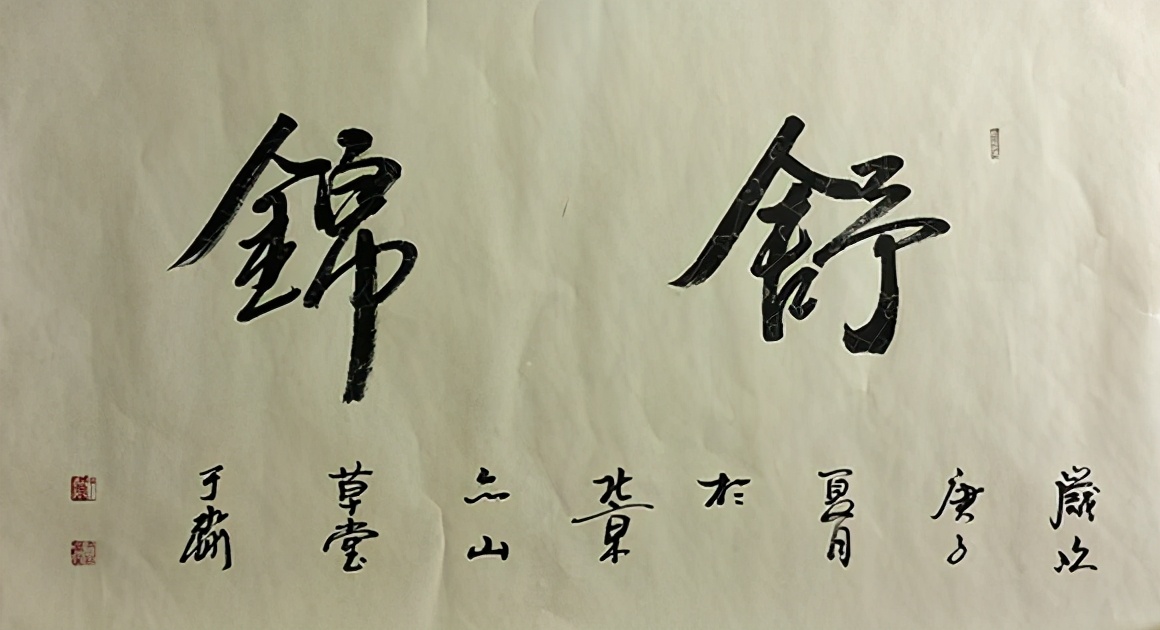 舒錦
歲次
庚子
夏月
於
北京
亦山
草堂
于